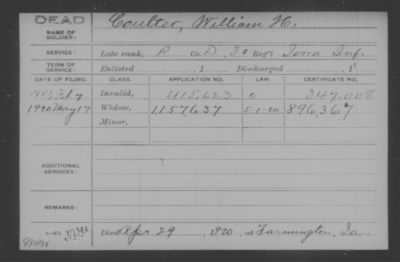 DEAD
NAME OF SOLDIER: Coulter, William H.
SERVICE: Late rank, P Co. D, 30 Reg't Iowa Inf.
TERM OF SERVICE: Enlisted 1 Discharged 1
DATE OF FILING. CLASS. APPLICATION NO. LAW. CERTIFICATE NO.
Invalid, 415,623 347,008
1920 May 17 Widow, 1,157,637 5-1-20 896,367
Minor,
ADDITIONAL SERVICES:
REMARKS:
Died Apr 29, 1920, at Farmington, Ia.